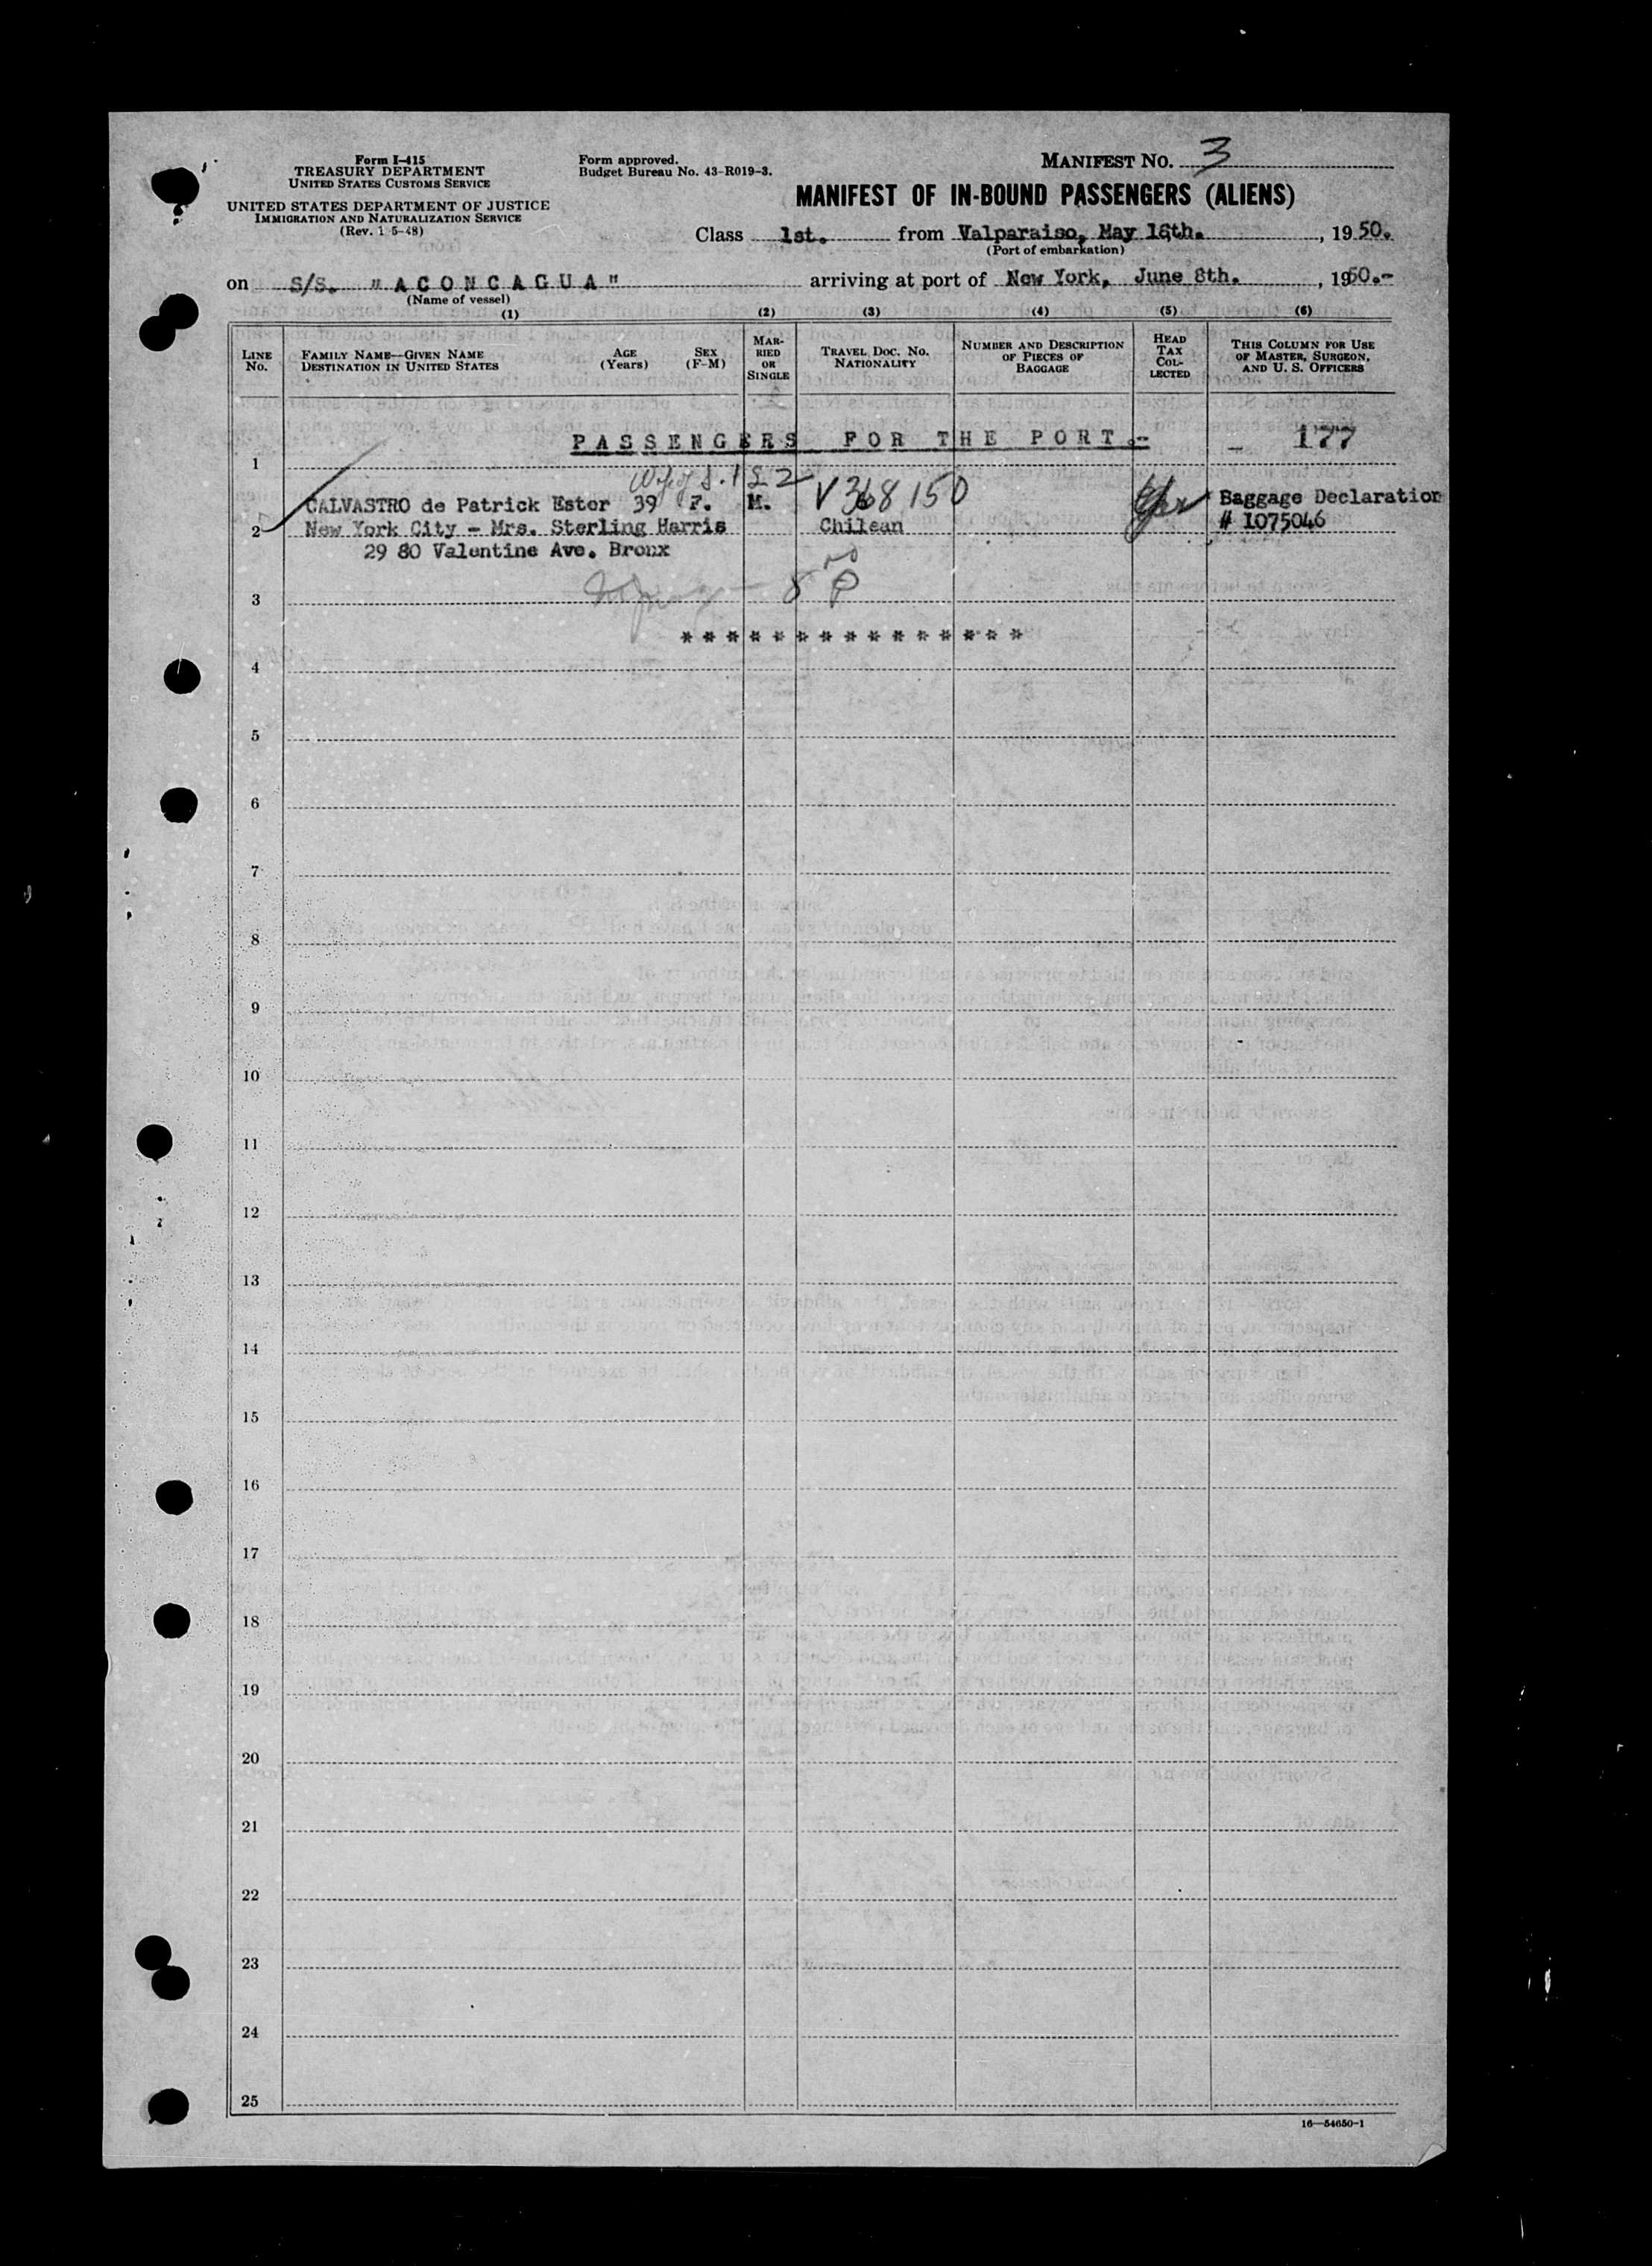 Form I-415
TREASURY DEPARTMENT
UNITED STATES CUSTOMS SERVICE
UNITED STATES DEPARTMENT OF JUSTICE
IMMIGRATION AND NATURALIZATION SERVICE
(Rev. 1 5-48)
Form approved.
Budget Bureau No. 43-R019-3.
MANIFEST NO. 3
MANIFEST OF IN-BOUND PASSENGERS (ALIENS)
Class 1st. from Valparaiso, May 16th., 1950.
(Port of embarkation)
on S/S. "ACONCAGUA" arriving at port of New York, June 8th., 1950.-
(Name of vessel)
(1) (2) (3) (4) (5) (6)
LINE No.
FAMILY NAME—GIVEN NAME
DESTINATION IN UNITED STATES
AGE (Years)
SEX (F-M)
MARRIED OR SINGLE
TRAVEL DOC. NO.
NATIONALITY
NUMBER AND DESCRIPTION OF PIECES OF BAGGAGE
HEAD TAX COLLECTED
THIS COLUMN FOR USE OF MASTER, SURGEON, AND U. S. OFFICERS
PASSENGERS FOR THE PORT.- - 177
1
Wife of
CALVASTRO de Patrick Ester 39 F. M. V368150 Baggage Declaration
2 New York City - Mrs. Sterling Harris Chilean # 1075046
29 80 Valentine Ave. Bronx
3
* * * * * * * * * * * * * * *
4
5
6
7
8
9
10
11
12
13
14
15
16
17
18
19
20
21
22
23
24
25
16—54650-1